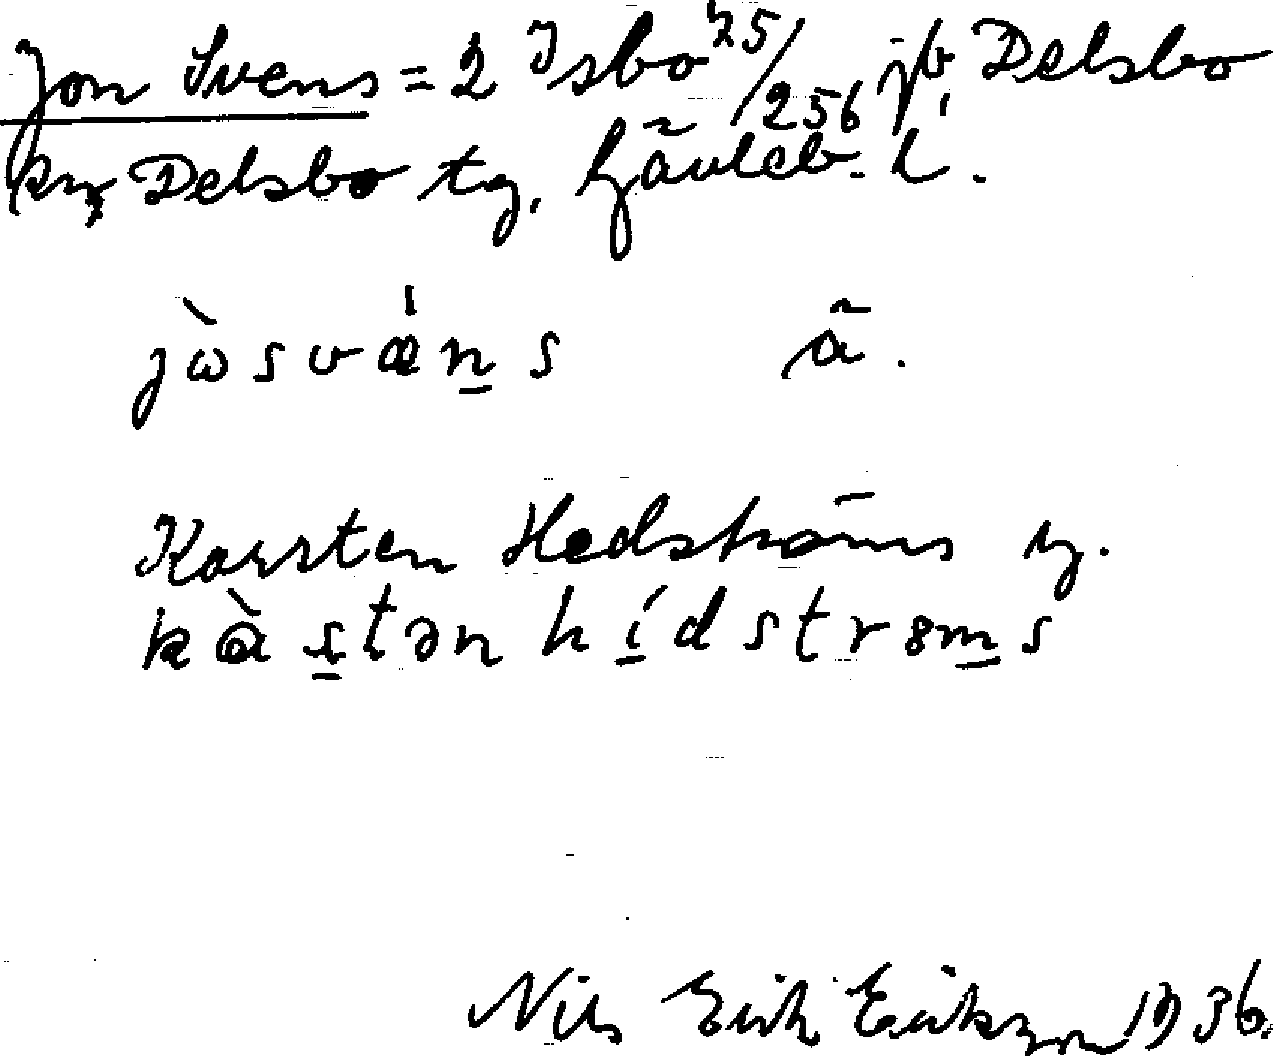 Jon Svens = 2 Isbo 75/256 jb, Delsbo
Delsbo tg, Gävleb. l.
jòsvǽn̲s ã.
Karsten Hedströms g.
kɑ̀s̲tən hí̲dstrɵm̲s
Nils Erik Erikzon 1936.